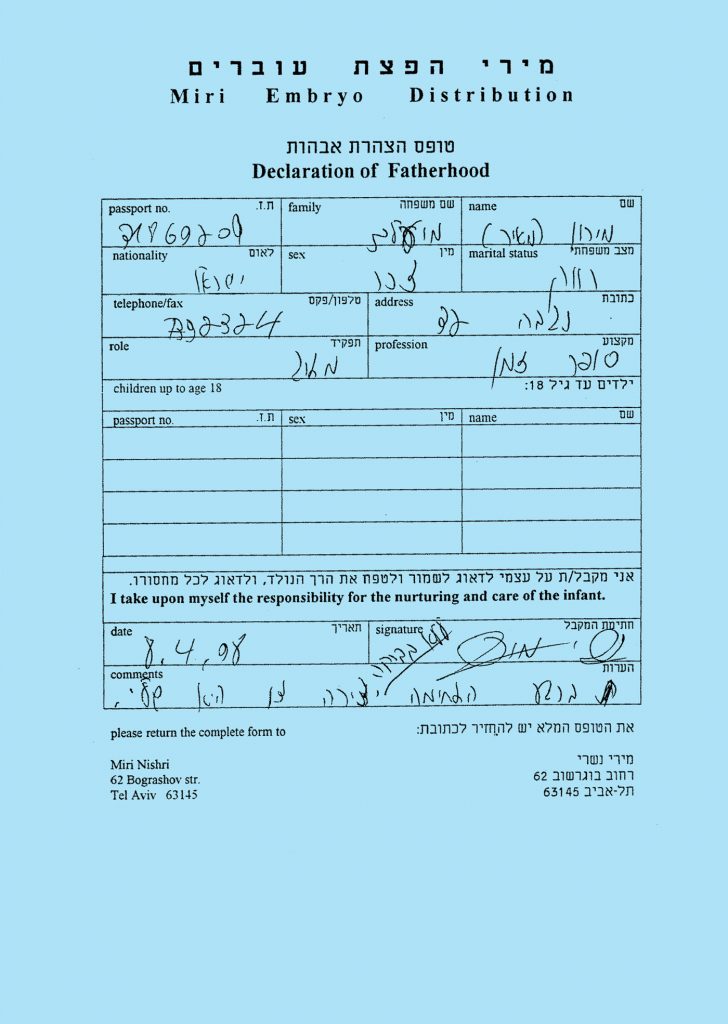 מירי הפצת עוברים
Miri Embryo Distribution
טופס הצהרת אבהות
Declaration of Fatherhood
passport no. ת.ז. family שם משפחה name שם
מירון (מאיר)
nationality לאום sex מין marital status מצב משפחתי
ישראל זכר
telephone/fax טלפון/פקס address כתובת
role תפקיד profession מקצוע
children up to age 18 ילדים עד גיל 18:
passport no. ת.ז. sex מין name שם
אני מקבל/ת על עצמי לדאוג לשמור ולטפח את הרך הנולד, ולדאוג לכל מחסורו.
I take upon myself the responsibility for the nurturing and care of the infant.
date תאריך signature חתימת המקבל
8.4.98
comments הערות
ברגע החתימה יצירה זו היא
please return the complete form to את הטופס המלא יש להחזיר לכתובת:
Miri Nishri מירי נשרי
62 Bograshov str. רחוב בוגרשוב 62
Tel Aviv 63145 תל-אביב 63145